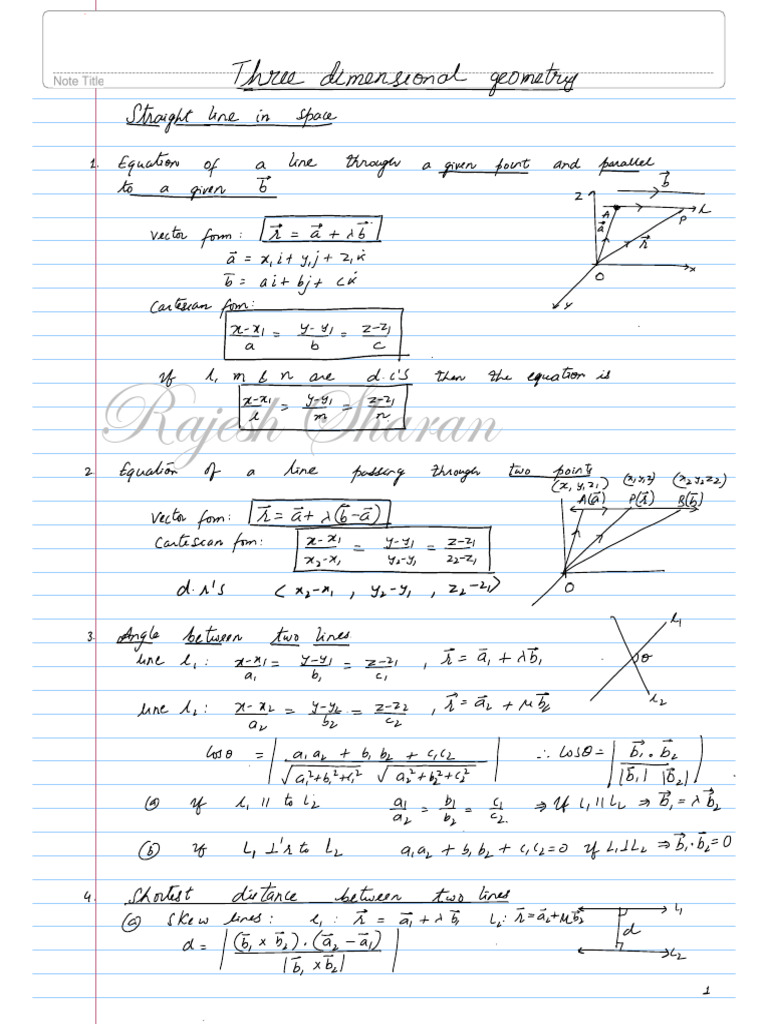 Three dimensional geometry
Note Title
Straight line in space
1. Equation of a line through a given point and parallel
to a given b⃗
vector form: r⃗ = a⃗ + λb⃗
a⃗ = x₁i + y₁j + z₁k
b⃗ = ai + bj + ck
Cartesian fom:
(x-x₁)/a = (y-y₁)/b = (z-z₁)/c
If l, m & n are d.c's then the equation is
(x-x₁)/l = (y-y₁)/m = (z-z₁)/n
z b⃗ A l a⃗ P r⃗ O x y
Rajesh Sharan
2 Equation of a line passing through two points
(x₁y₁z₁) (x,y,z) (x₂y₂z₂)
A(a⃗) P(r⃗) B(b⃗)
vector fom: r⃗ = a⃗ + λ(b⃗-a⃗)
Cartesean fom: (x-x₁)/(x₂-x₁) = (y-y₁)/(y₂-y₁) = (z-z₁)/(z₂-z₁)
d.r's < x₂-x₁ , y₂-y₁ , z₂-z₁> O
3. Angle between two lines
line l₁: (x-x₁)/a₁ = (y-y₁)/b₁ = (z-z₁)/c₁ , r⃗ = a⃗₁ + λb⃗₁
l₁ θ l₂
line l₂: (x-x₂)/a₂ = (y-y₂)/b₂ = (z-z₂)/c₂ , r⃗ = a⃗₂ + μb⃗₂
cosθ = |(a₁a₂ + b₁b₂ + c₁c₂)/(√(a₁²+b₁²+c₁²) √(a₂²+b₂²+c₂²))| ∴ cosθ = |(b⃗₁ . b⃗₂)/(|b⃗₁| |b⃗₂|)|
(a) if l₁ || to l₂ a₁/a₂ = b₁/b₂ = c₁/c₂ ⇒ If L₁ || L₂ ⇒ b⃗₁ = λb⃗₂
(b) if L₁ ⊥'r to L₂ a₁a₂ + b₁b₂ + c₁c₂=0 if L₁⊥L₂ ⇒ b⃗₁.b⃗₂=0
4. Shortest distance between two lines
(a) Skew lines: l₁: r⃗ = a⃗₁ + λb⃗₁ L₂: r⃗=a⃗₂+μb⃗₂
d = |((b⃗₁ x b⃗₂).(a⃗₂-a⃗₁))/|b⃗₁ x b⃗₂||
L₁ d L₂
1